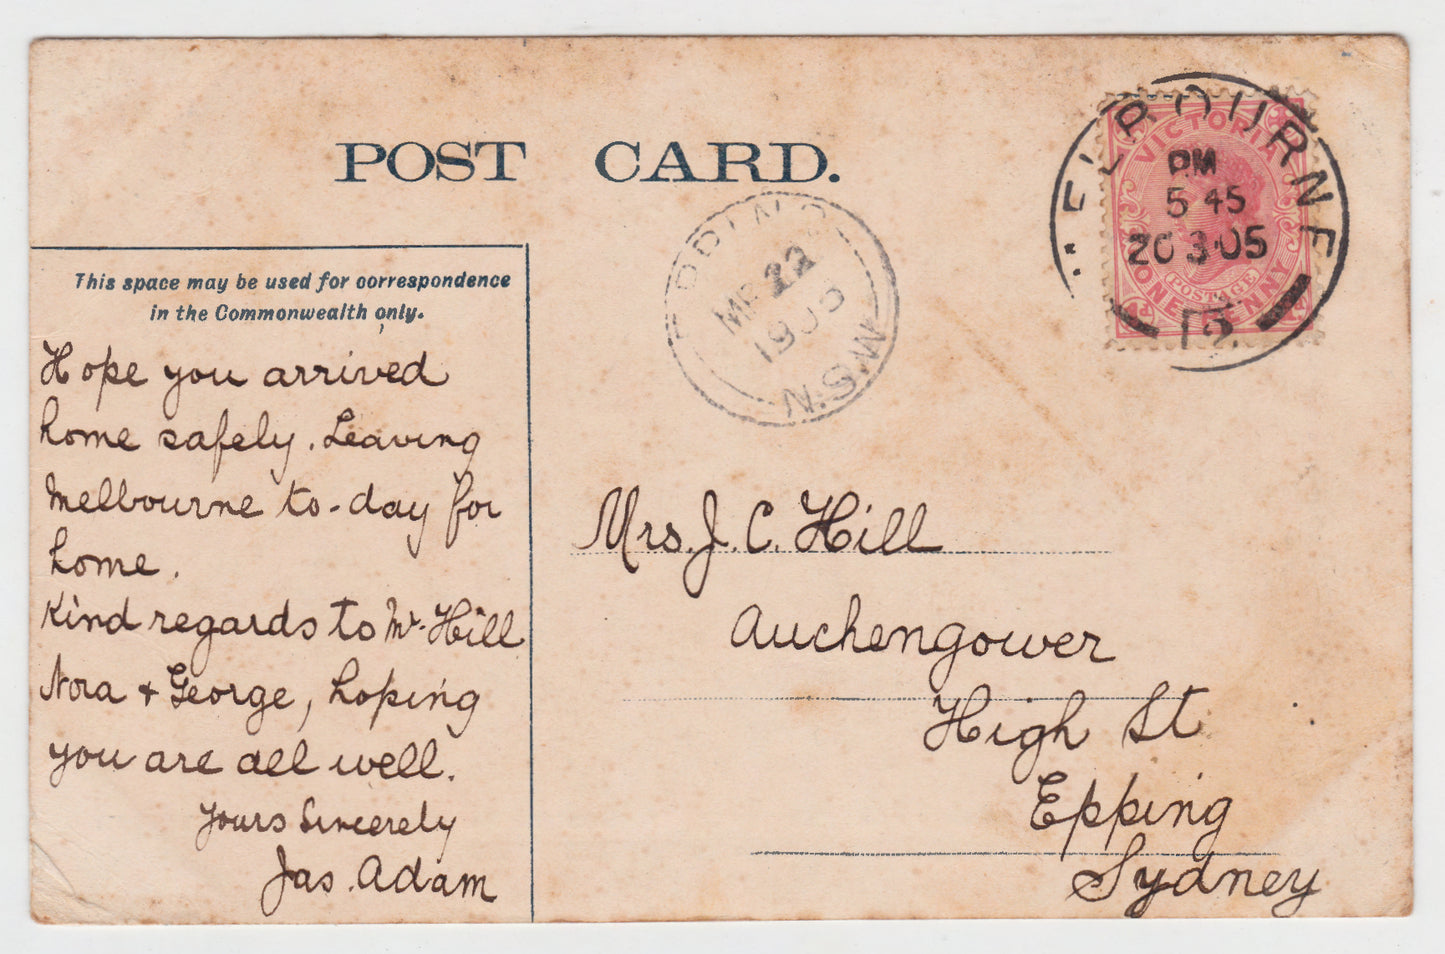 POST CARD.
This space may be used for correspondence
in the Commonwealth only.
Hope you arrived
home safely. Leaving
Melbourne to-day for
home.
Kind regards to Mr. Hill
Nora & George, hoping
you are all well.
Yours Sincerely
Jas. Adam
Mrs. J. C. Hill
Auchengower
High St
Epping
Sydney
VICTORIA
POSTAGE
ONE PENNY
MELBOURNE
PM
5 45
20 3·05
12
MR 22
1905
N.S.W